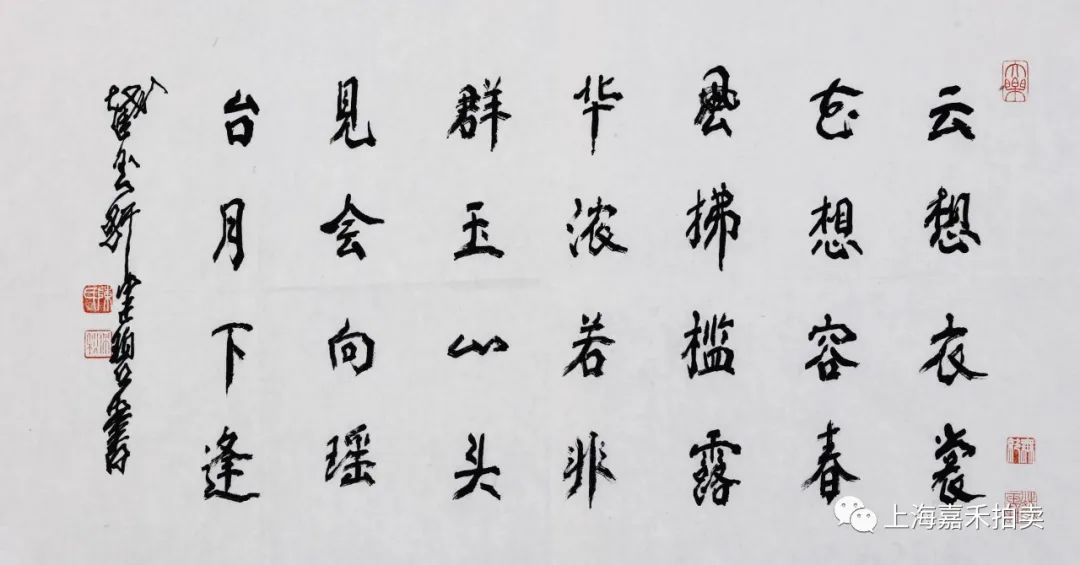 云想衣裳
花想容春
風拂槛露
华浓若非
群玉山头
見会向瑶
台月下逢
上海嘉禾拍卖